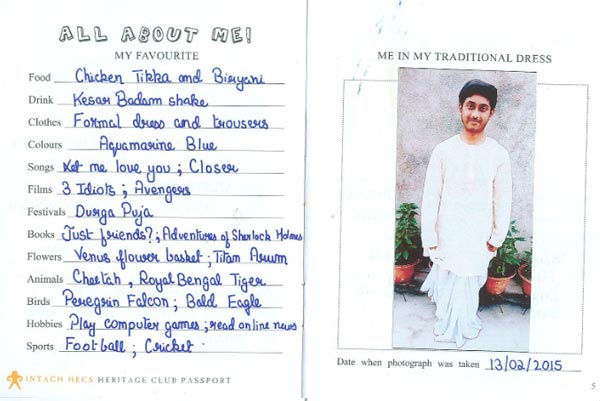 ALL ABOUT ME!
MY FAVOURITE
Food Chicken Tikka and Biryani
Drink Kesar Badam shake
Clothes Formal dress and trousers
Colours Aquamarine Blue
Songs Let me love you ; Closer
Films 3 Idiots ; Avengers
Festivals Durga Puja
Books Just friends? ; Adventures of Sherlock Holmes
Flowers Venus flower basket ; Titan Arum
Animals Cheetah , Royal Bengal Tiger
Birds Peregrin Falcon ; Bald Eagle
Hobbies Play computer games ; read online news
Sports Football ; Cricket
INTACH HECS HERITAGE CLUB PASSPORT
ME IN MY TRADITIONAL DRESS
Date when photograph was taken 13/02/2015
5